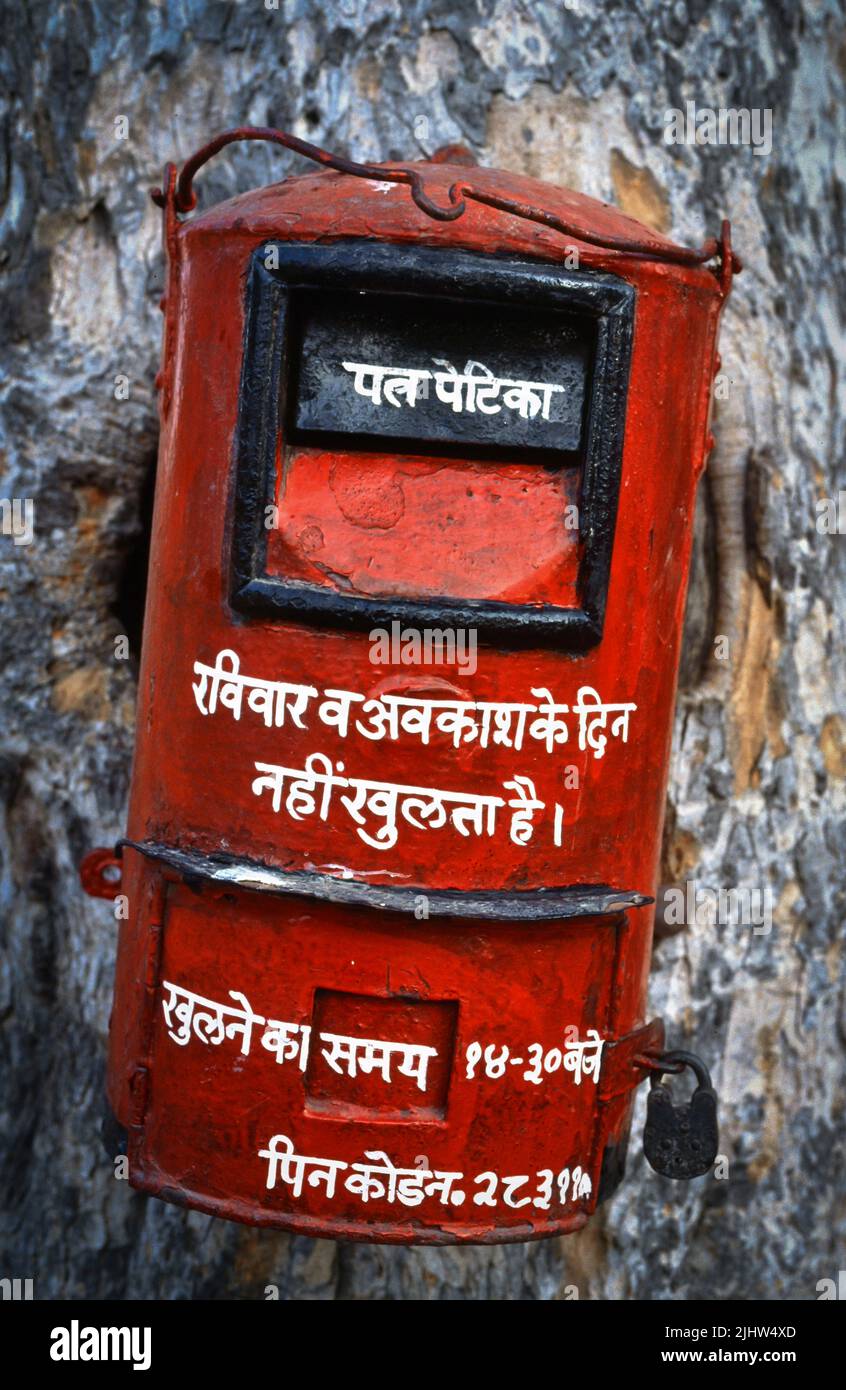 पत्र पेटिका
रविवार व अवकाश के दिन
नहीं खुलता है।
खुलने का समय १४-३० बजे
पिन कोड न०
alamy
Image ID: 2JHW4XD
www.alamy.com